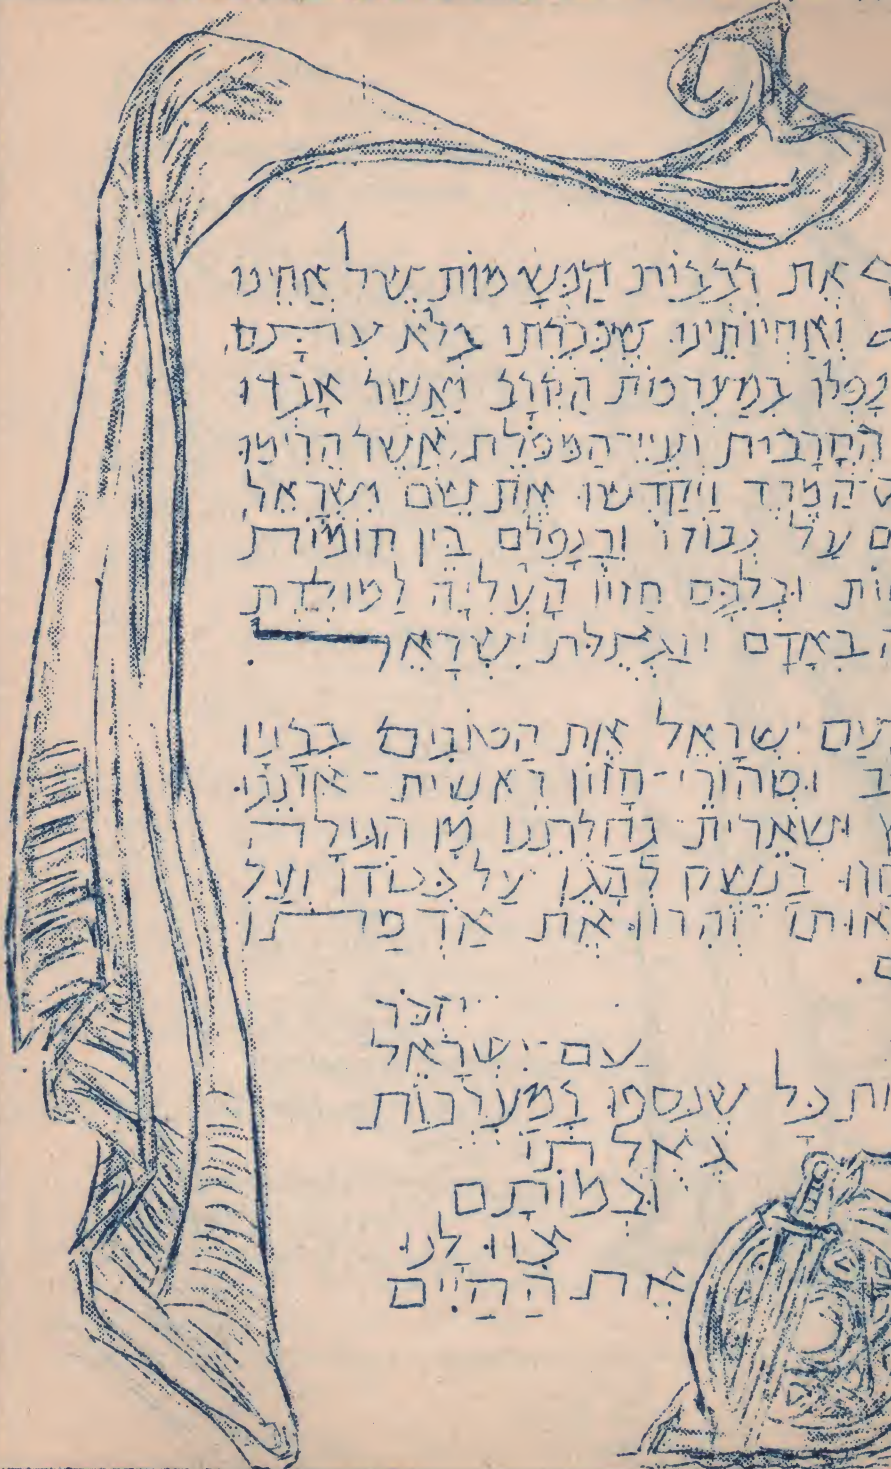 אֶת רִבְבוֹת הַנְּשָׁמוֹת שֶׁל אַחֵינוּ
וְאַחְיוֹתֵינוּ שֶׁנִּכְרְתוּ בְּלֹא עִתָּם,
נָפְלוּ בְּמַעַרְכוֹת הַקְּרָב וַאֲשֶׁר אָבְדוּ
הֶחֳרָבוֹת וְעִיֵּי־הַמַּפֹּלֶת, אֲשֶׁר הֵרִימוּ
הַמֶּרֶד וַיְקַדְּשׁוּ אֶת שֵׁם יִשְׂרָאֵל,
עַל כְּבוֹדוֹ וּבְנָפְלָם בֵּין חוֹמוֹת
וּבְלִבָּם חֲזוֹן הָעֲלִיָּה לַמּוֹלֶדֶת
בְּאָדָם וּגְאֻלַּת יִשְׂרָאֵל.
יִשְׂרָאֵל אֶת הַטּוֹבִים בְּבָנָיו
וּטְהוֹרֵי־חָזוֹן רֵאשִׁית־אוֹנֵנוּ.
וּשְׁאֵרִית נַחֲלָתֵנוּ מִן הַגּוֹלָה
בַּנֶּשֶׁק לְהָגֵן עַל כְּבוֹדוֹ וְעַל
אֶת אַדְמָתוֹ
יִזְכֹּר
עַם־יִשְׂרָאֵל
כָּל שֶׁנִּסְפּוּ בְּמַעַרְכוֹת
גְּאֻלָּתוֹ
וּבְמוֹתָם
צִוּוּ לָנוּ
אֶת הַחַיִּים